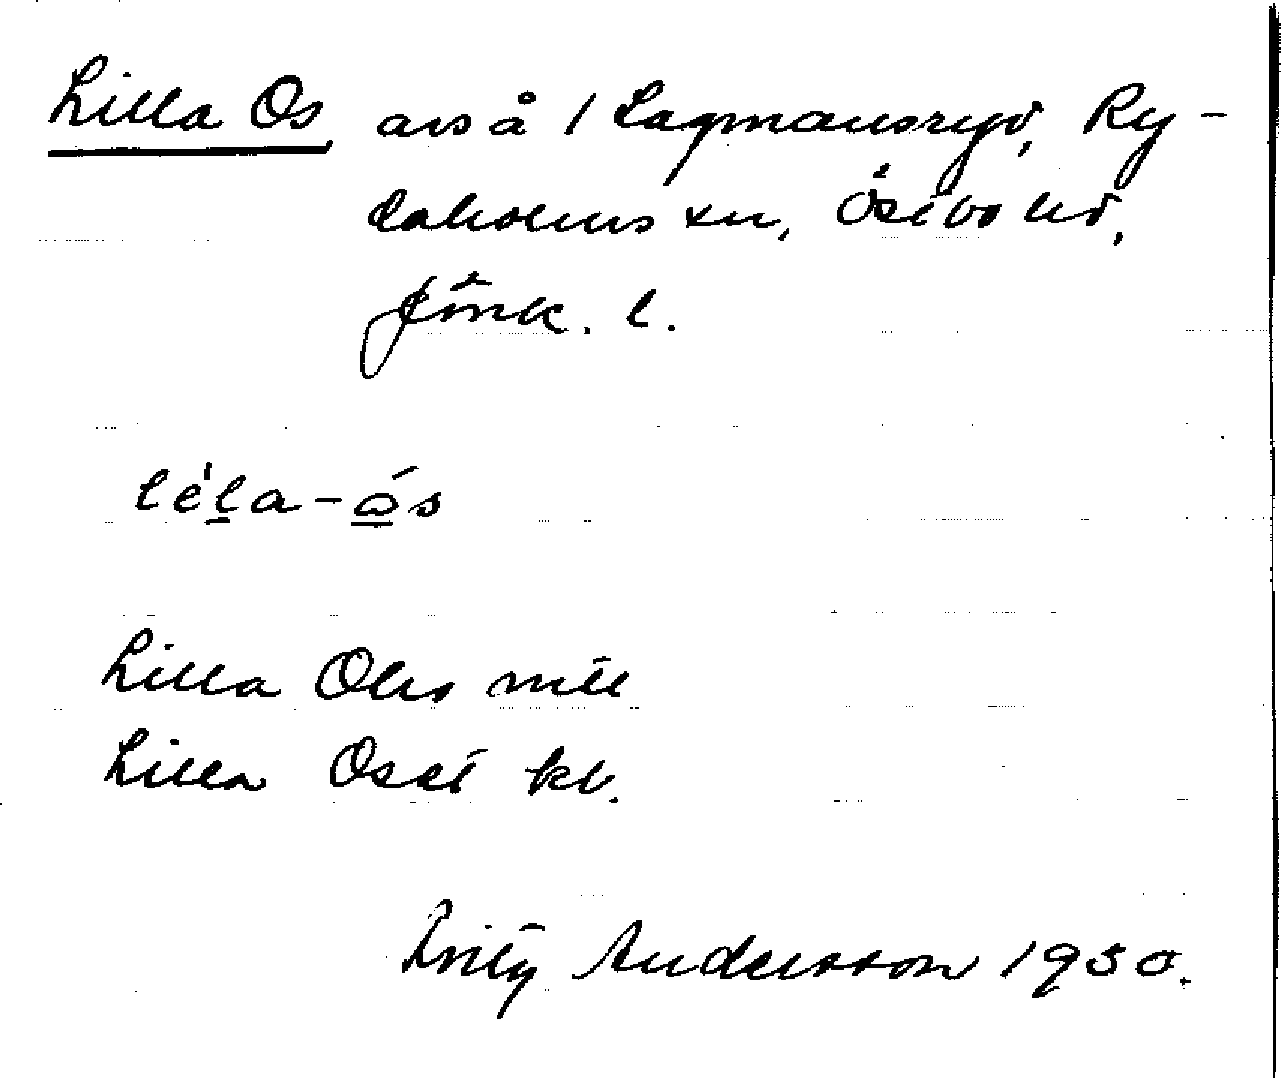 Lilla Os, avs å 1 Lagmansryd, Ry-
daholms sn, Östbo hd,
Jönk. l.
lé̍l̲a-ó̲s
Lilla Olss mtl
Lilla Oset kb.
Fritz Andersson 1930.